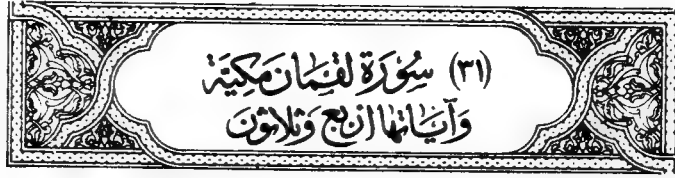 (٣١) سُوْرَة لقمَان مَكِيَّة
وَآيَاتهَا ارْبَع وَثلاثونَ